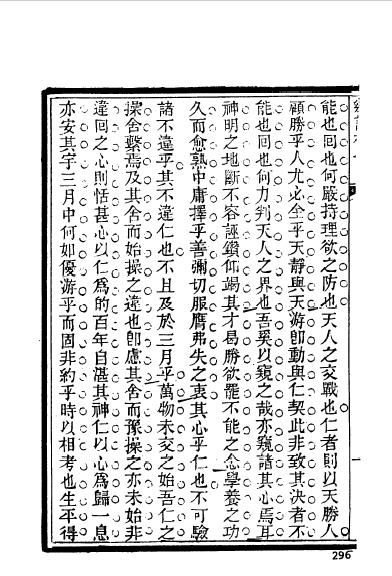 能也回也何嚴持理欲之防也天人之交戰也仁者則以天勝人
顧勝乎人尤必全乎天靜與天游卽動與仁契此非致其決者不
能也回也何力判天人之界也吾奚以窺之哉亦窺諸其心焉耳
神明之地斷不容誣鑽仰竭其才曷勝欲罷不能之念學養之功
久而愈熟中庸擇乎善彌切服膺弗失之衷其心乎仁也不可驗
諸不違乎其不違仁也不且及於三月乎萬物未交之始吾仁之
操舍繫焉及其舍而始操之違也卽慮其舍而豫操之亦未始非
違回之心則恬甚心以仁爲的百年自湛其神仁以心爲歸一息
亦安其宇三月中何如優游乎而固非約乎時以相考也生平得
296